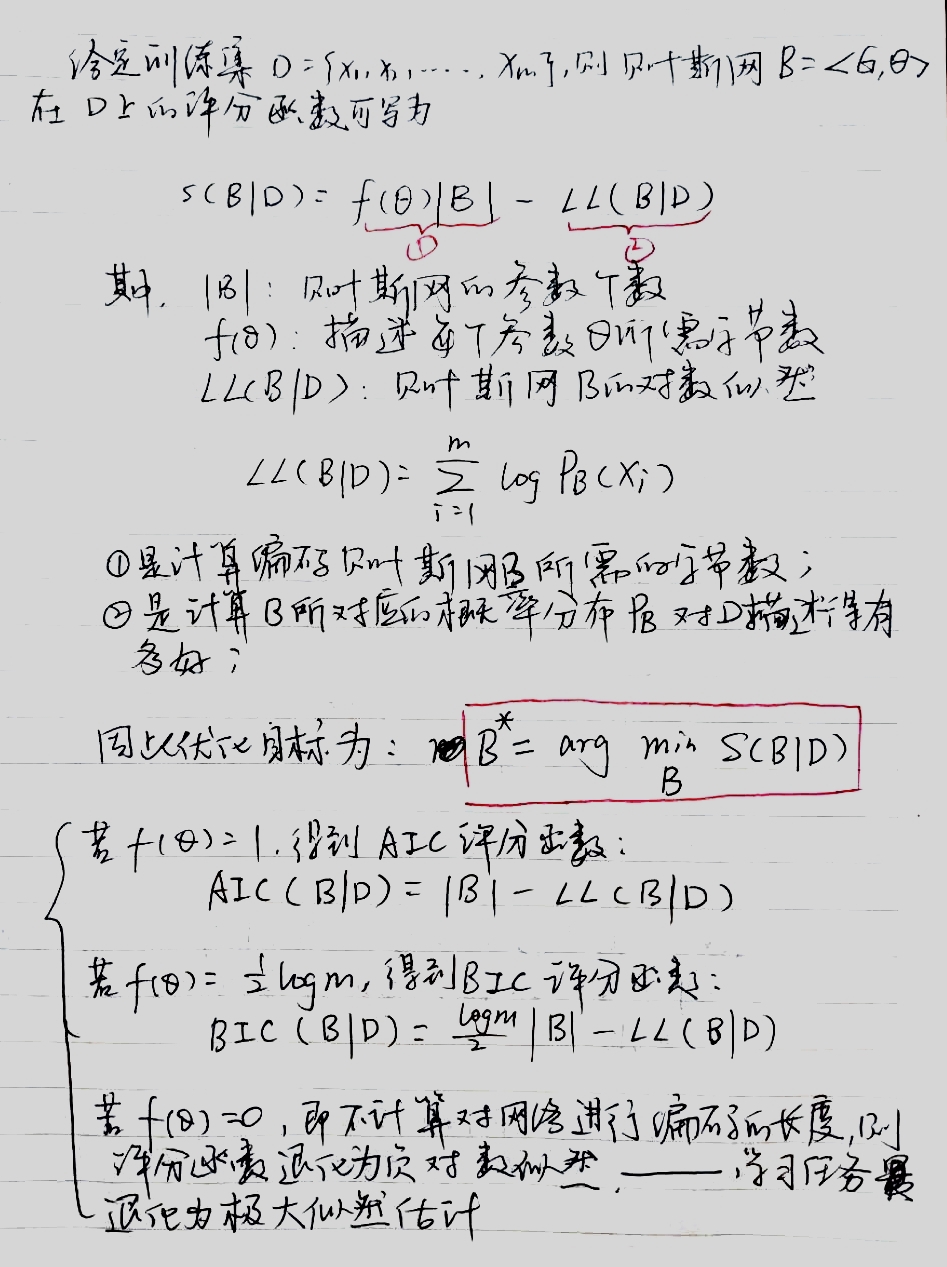 给定训练集 D={x₁,x₂,……,xₘ},则贝叶斯网 B=<G,θ>
在D上的评分函数可写为
s(B|D)= f(θ)|B| - LL(B|D)
① ②
其中, |B|: 贝叶斯网的参数个数
f(θ): 描述每个参数θ所需字节数
LL(B|D): 贝叶斯网B的对数似然
LL(B|D)= ∑ᵢ₌₁ᵐ log P_B(xᵢ)
①是计算编码贝叶斯网B所需的字节数;
②是计算B所对应的概率分布P_B对D描述得有
多好;
因此优化目标为: B*= arg min_B S(B|D)
若 f(θ)=1, 得到 AIC 评分函数:
AIC(B|D)= |B| - LL(B|D)
若 f(θ)= ½ log m, 得到BIC 评分函数:
BIC(B|D)= log m/2 |B| - LL(B|D)
若 f(θ)=0, 即不计算对网络进行编码的长度, 则
评分函数退化为负对数似然, —— 学习任务
退化为极大似然估计